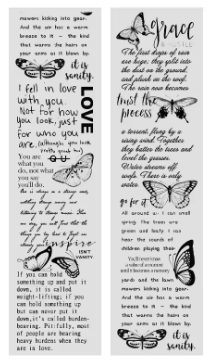 mowers kicking into gear.
And the air has a warm
breeze to it - the kind
that warms the hairs on
your arms as it blows by.
it is
sanity.
I fell in love
with you.
Not for how
you look, just
for who you
are (although, you look
pretty great too)
LOVE
You are
what you
do, not what
you say
you'll do.
inspire
ISN'T
VANITY.
If you can hold
something up and put it
down, it is called
weight-lifting; if you
can hold something up
but can never put it
down, it's called burden-
bearing. Pitifully, most
of people are bearing
heavy burdens when they
are in love.
grace
The first drops of rain
are huge; they split into
the dust on the ground,
and plunk on the roof.
The rain now becomes
trust the
process
a torrent, flung by a
rising wind. Together
they batter the trees and
level the grasses.
Water streams off
roofs. There is only
water.
go for it
All around us I can smell
spring. The trees are
green and leafy. I can
hear the sounds of
children playing their
You'll never know
the value of a moment
until it becomes a memory
yards and the lawn
mowers kicking into gear.
And the air has a warm
breeze to it - the kind
that warms the hairs on
your arms as it blows by.
it is
sanity.